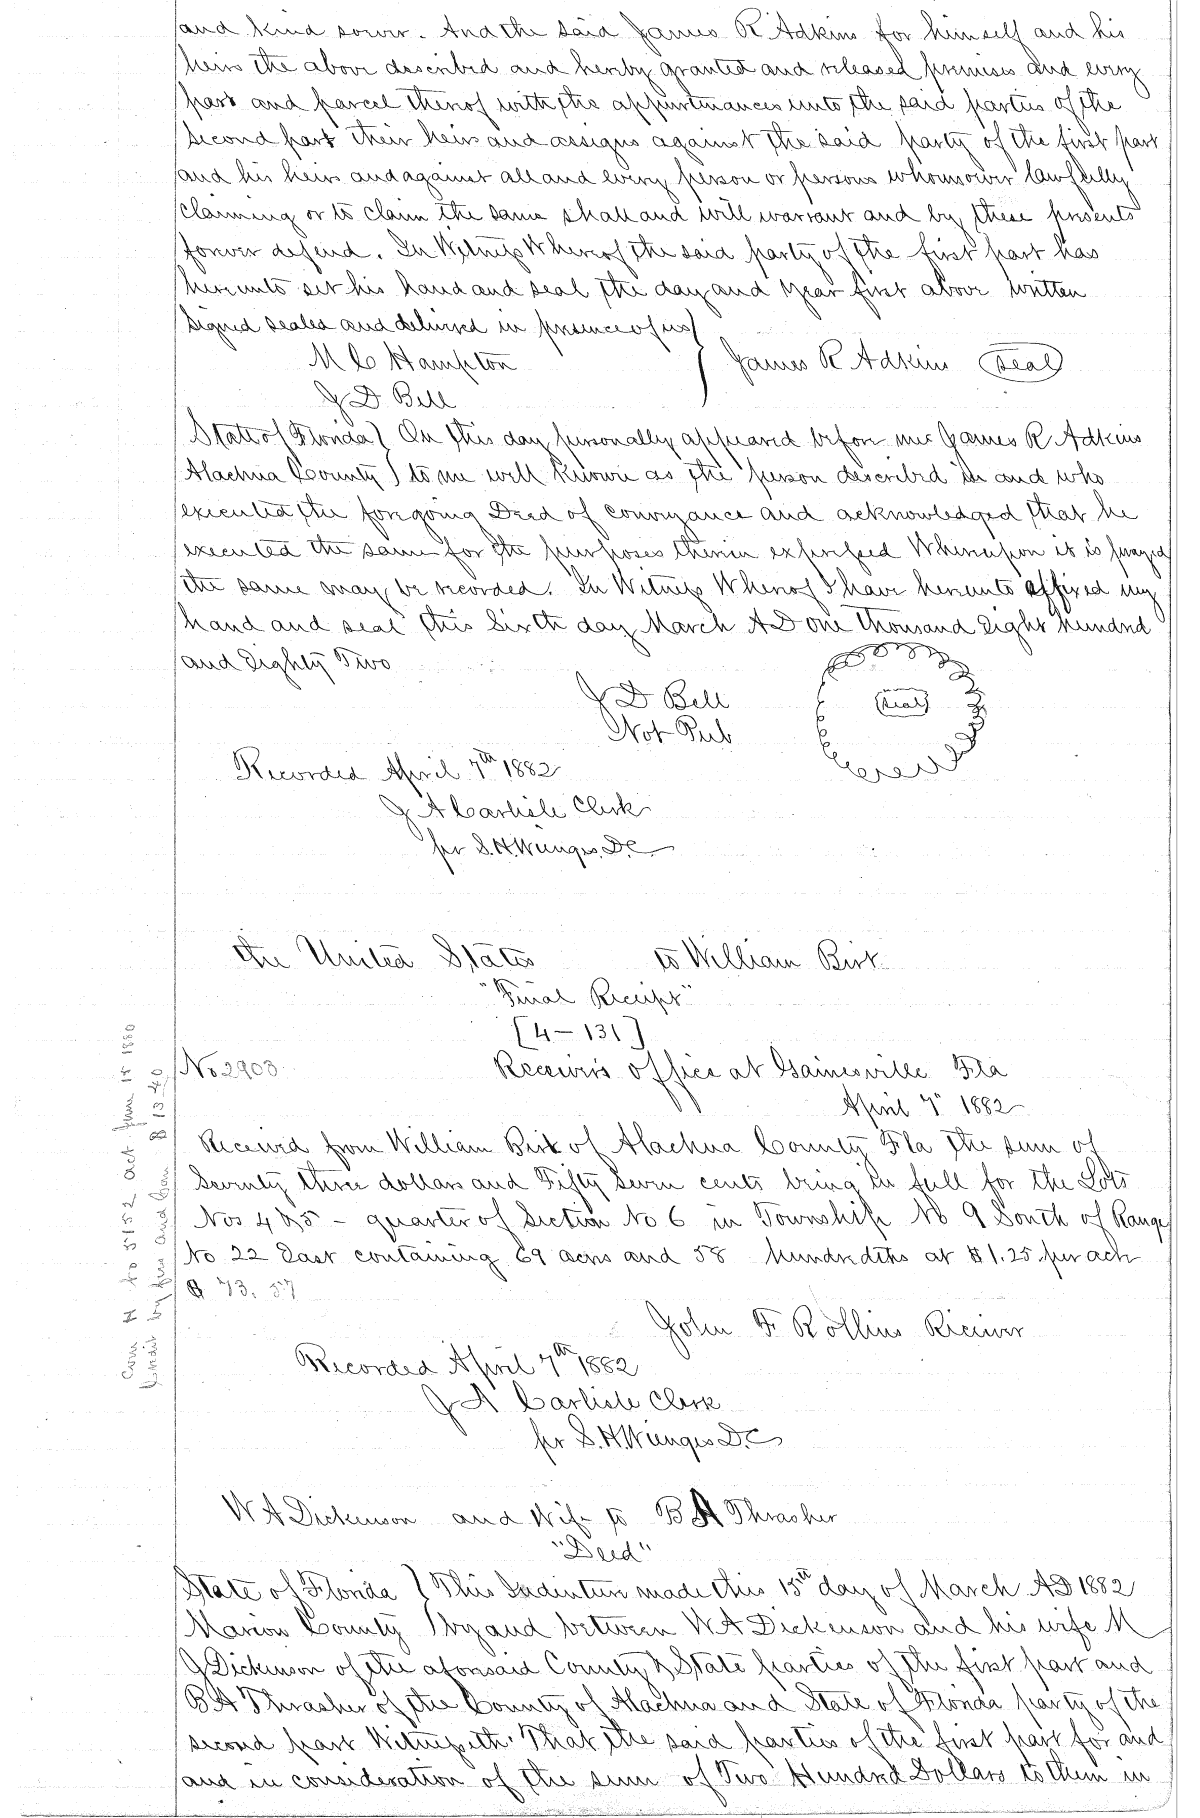 and kind soever. And the said James R Adkins for himself and his
heirs the above described and hereby granted and released premises and every
part and parcel thereof with the appurtenances unto the said parties of the
second part their heirs and assigns against the said party of the first part
and his heirs and against all and every person or persons whomsoever lawfully
claiming or to claim the same shall and will warrant and by these presents
forever defend. In Witness Whereof the said party of the first part has
hereunto set his hand and seal the day and year first above written
Signed sealed and delivered in presence of us
M C Hampton James R Adkins Seal
J D Bell
State of Florida } On this day personally appeared before me James R Adkins
Alachua County } to me well known as the person described in and who
executed the foregoing Deed of conveyance and acknowledged that he
executed the same for the purposes therein expressed Whereupon it is prayed
the same may be recorded. In Witness Whereof I have hereunto affixed my
hand and seal this Sixth day March AD one thousand Eight hundred
and Eighty Two
J D Bell
Not Pub
Seal
Recorded April 7th 1882
J A Carlisle Clerk
per S.H. Wienges. D.C.
The United States to William Birt
"Final Receipt"
[4-131]
No 2903 Receiver's office at Gainesville Fla
April 7" 1882
Received from William Birt of Alachua County Fla the sum of
Seventy three dollars and Fifty Seven cents being in full for the Lots
Nos 4 & 5 - quarter of Section No 6 in Township No 9 South of Range
No 22 East containing 69 acres and 58 hundredths at $1.25 per acre
$ 73.57
John F Rollins Receiver
Recorded April 7th 1882
J A Carlisle Clerk
per S.H. Wienges D.C
No 5152 act June 15 1880
$ 13.40
W A Dickenson and Wife to B A Thrasher
"Deed"
State of Florida } This Indenture made this 15th day of March AD 1882
Marion County } by and between W A Dickenson and his wife M
J Dickinson of the aforesaid County & State parties of the first part and
B A Thrasher of the County of Alachua and State of Florida party of the
second part Witnesseth. That the said parties of the first part for and
and in consideration of the sum of Two Hundred Dollars to them in